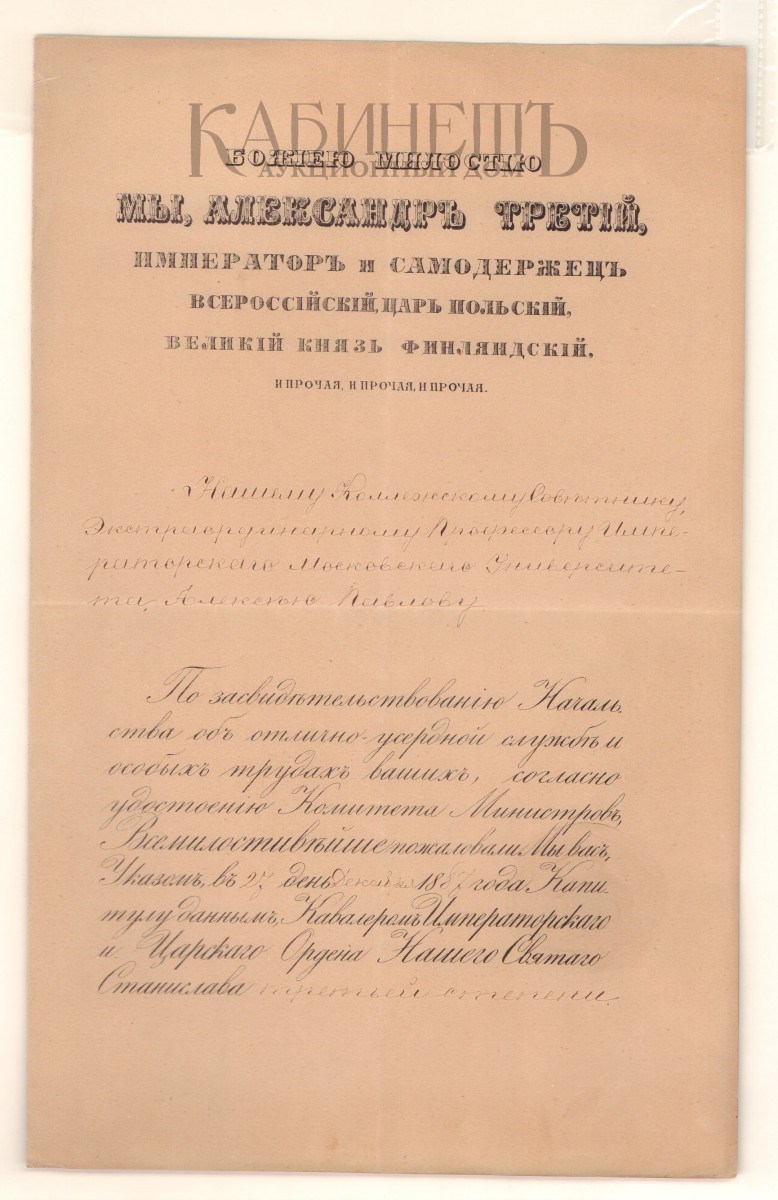 КАБИНЕТЪ
АУКЦИОННЫЙ ДОМ
БОЖІЕЮ МИЛОСТІЮ
МЫ, АЛЕКСАНДРЪ ТРЕТІЙ,
ИМПЕРАТОРЪ и САМОДЕРЖЕЦЪ
ВСЕРОССІЙСКІЙ, ЦАРЬ ПОЛЬСКІЙ,
ВЕЛИКІЙ КНЯЗЬ ФИНЛЯНДСКІЙ,
И ПРОЧАЯ, И ПРОЧАЯ, И ПРОЧАЯ.
Нашему Коллежскому Совѣтнику,
Экстраординарному Профессору Импе-
раторскаго Московскаго Университе-
та, Алексѣю Павлову
По засвидѣтельствованію Началь-
ства объ отлично-усердной службѣ и
особыхъ трудахъ вашихъ, согласно
удостоенію Комитета Министровъ,
Всемилостивѣйше пожаловали Мы васъ,
Указомъ, въ 27 день Декабря 1887 года Капи-
тулу даннымъ, Кавалеромъ Императорскаго
и Царскаго Ордена Нашего Святаго
Станислава третьей степени.